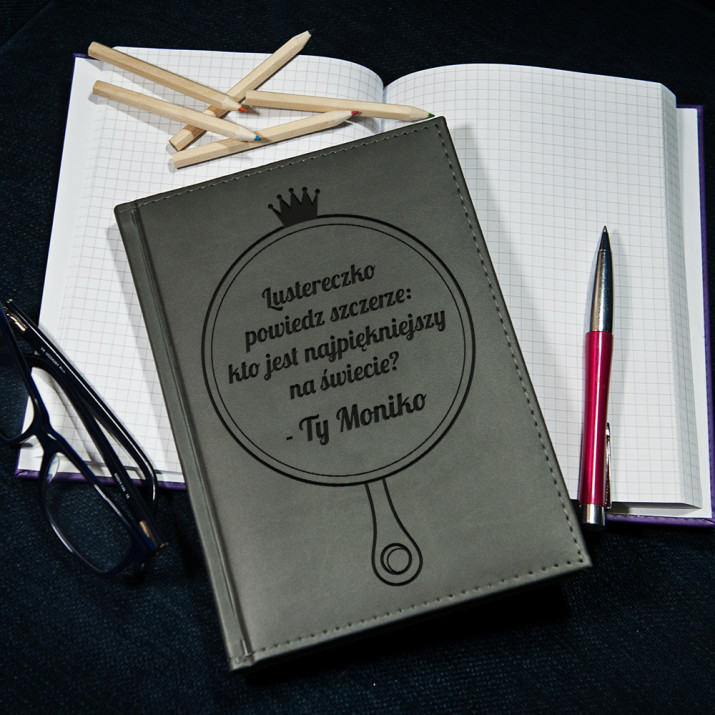 Lustereczko
powiedz szczerze:
kto jest najpiękniejszy
na świecie?
- Ty Moniko